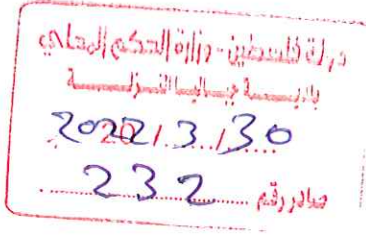 دولة فلسطين - وزارة الحكم المحلي
بلديــة جباليا النــزلــة
2022/3/30
صادر رقم 232